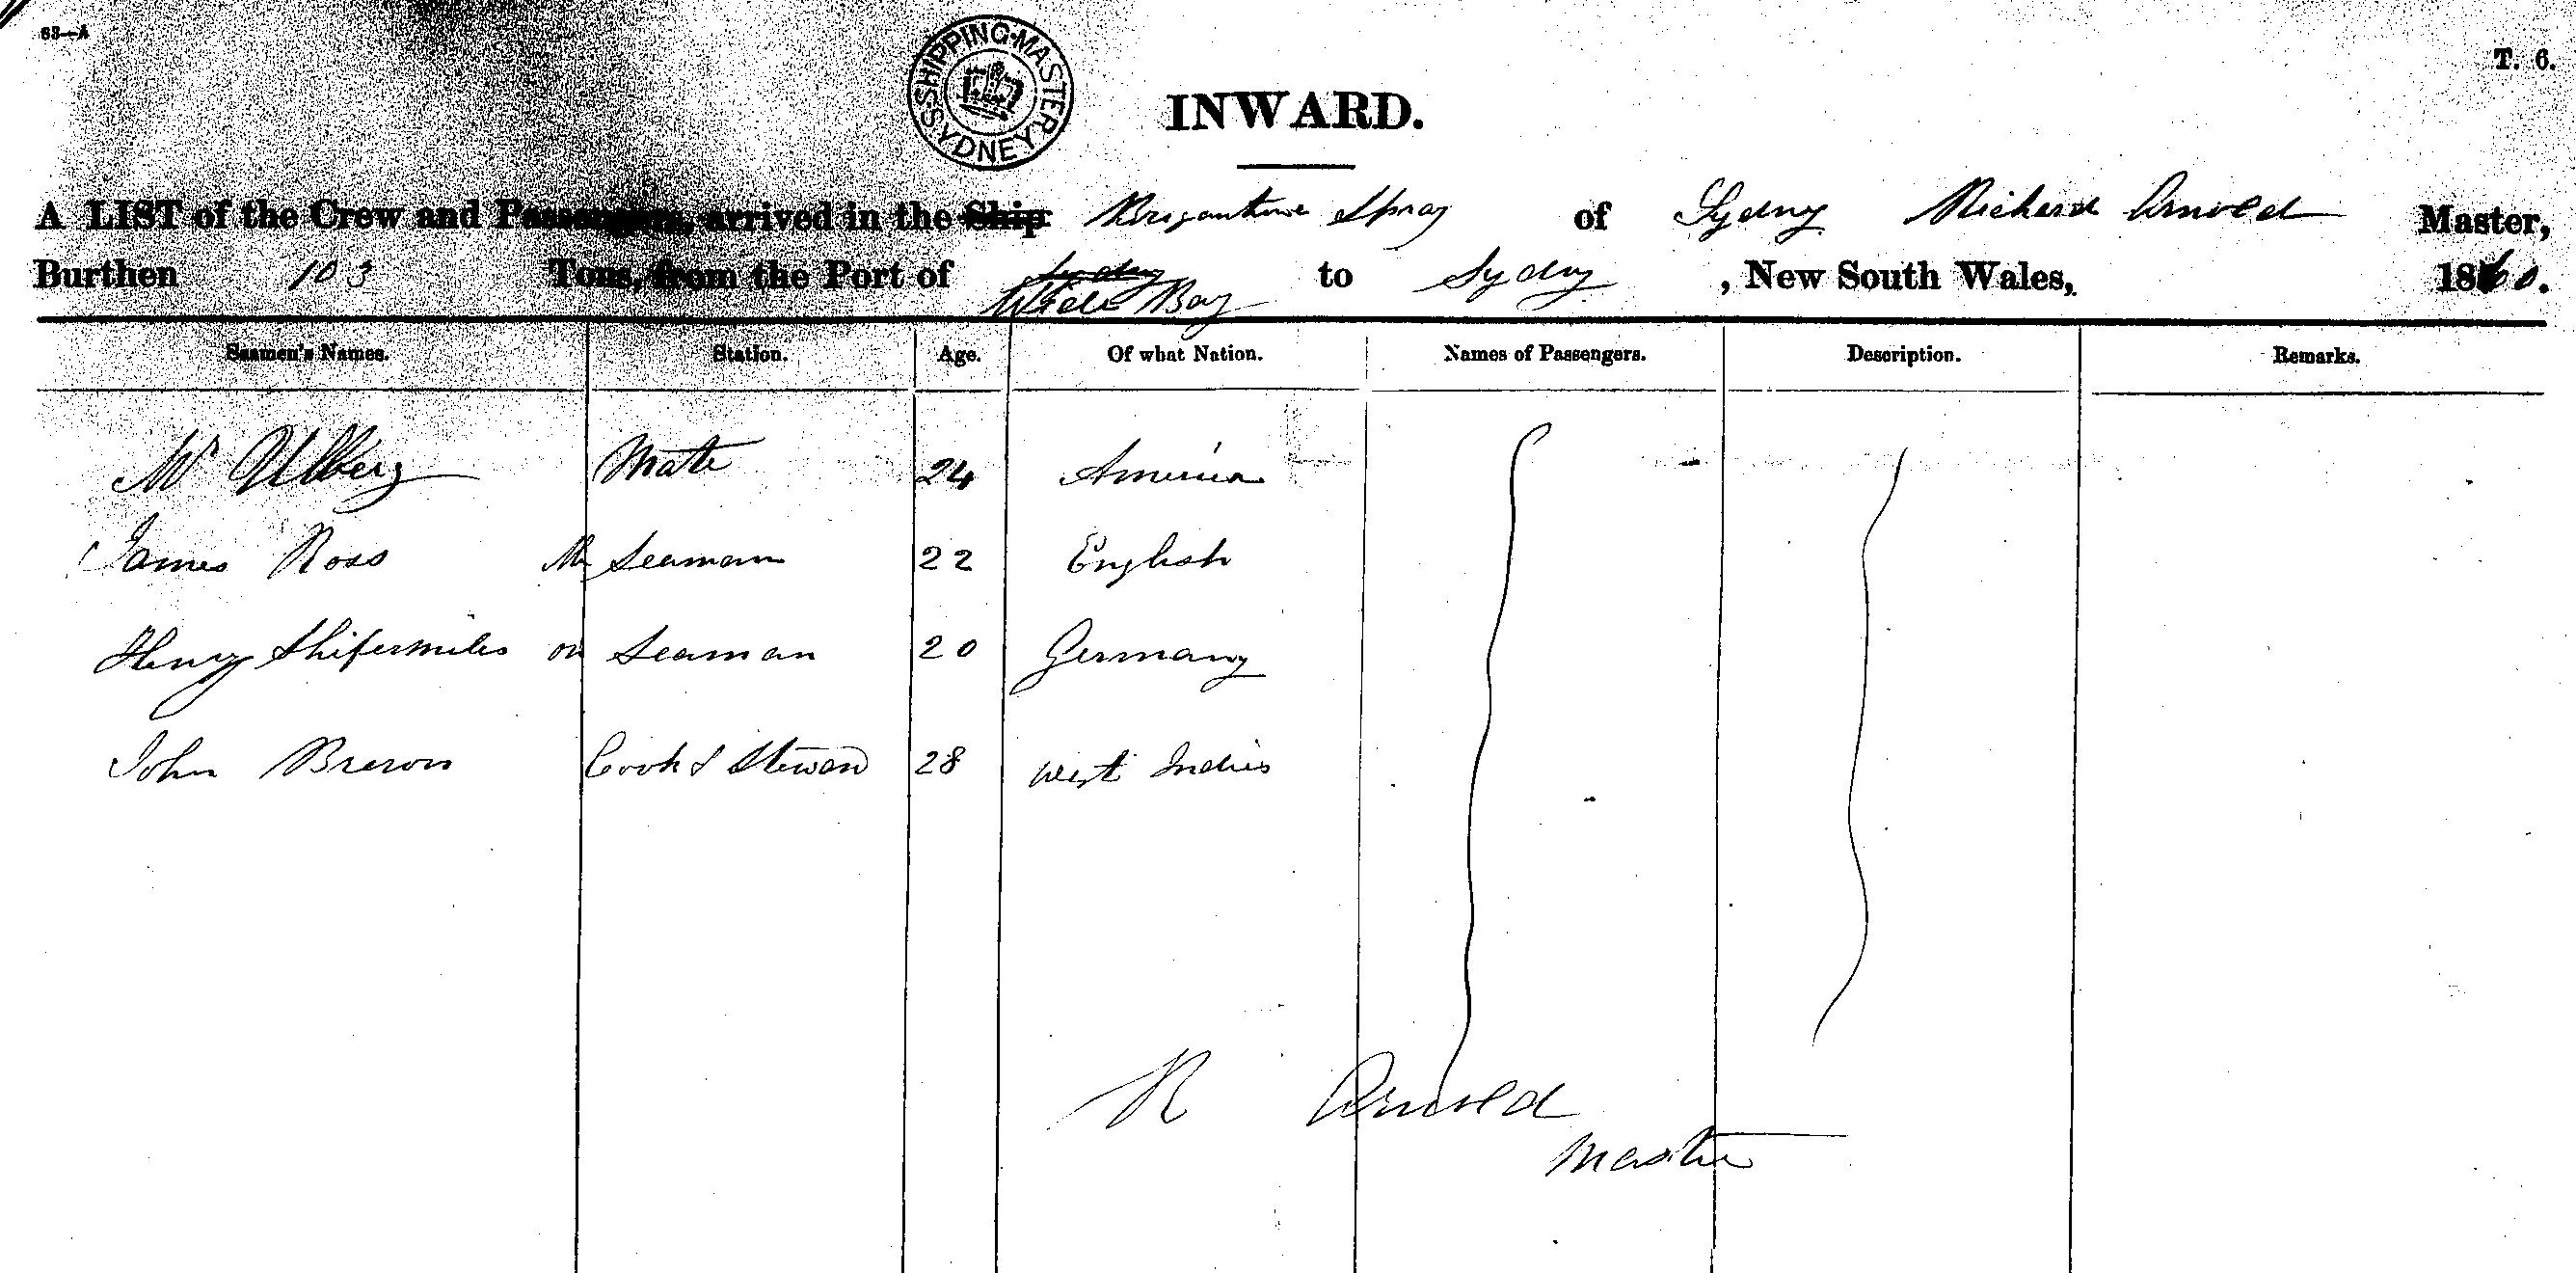 63—A
SHIPPING MASTER SYDNEY
T. 6.
INWARD.
A LIST of the Crew and Passengers, arrived in the Ship Brigantine Spray of Sydney Richard Arnold Master,
Burthen 103 Tons, from the Port of Sydney Wide Bay to Sydney, New South Wales, 1860.
Seamen's Names. Station. Age. Of what Nation. Names of Passengers. Description. Remarks.
Mate 24 America
James Ross Seaman 22 English
Henry Seaman 20 Germany
John Brown Cook & Steward 28 West Indies
R Arnold
Master